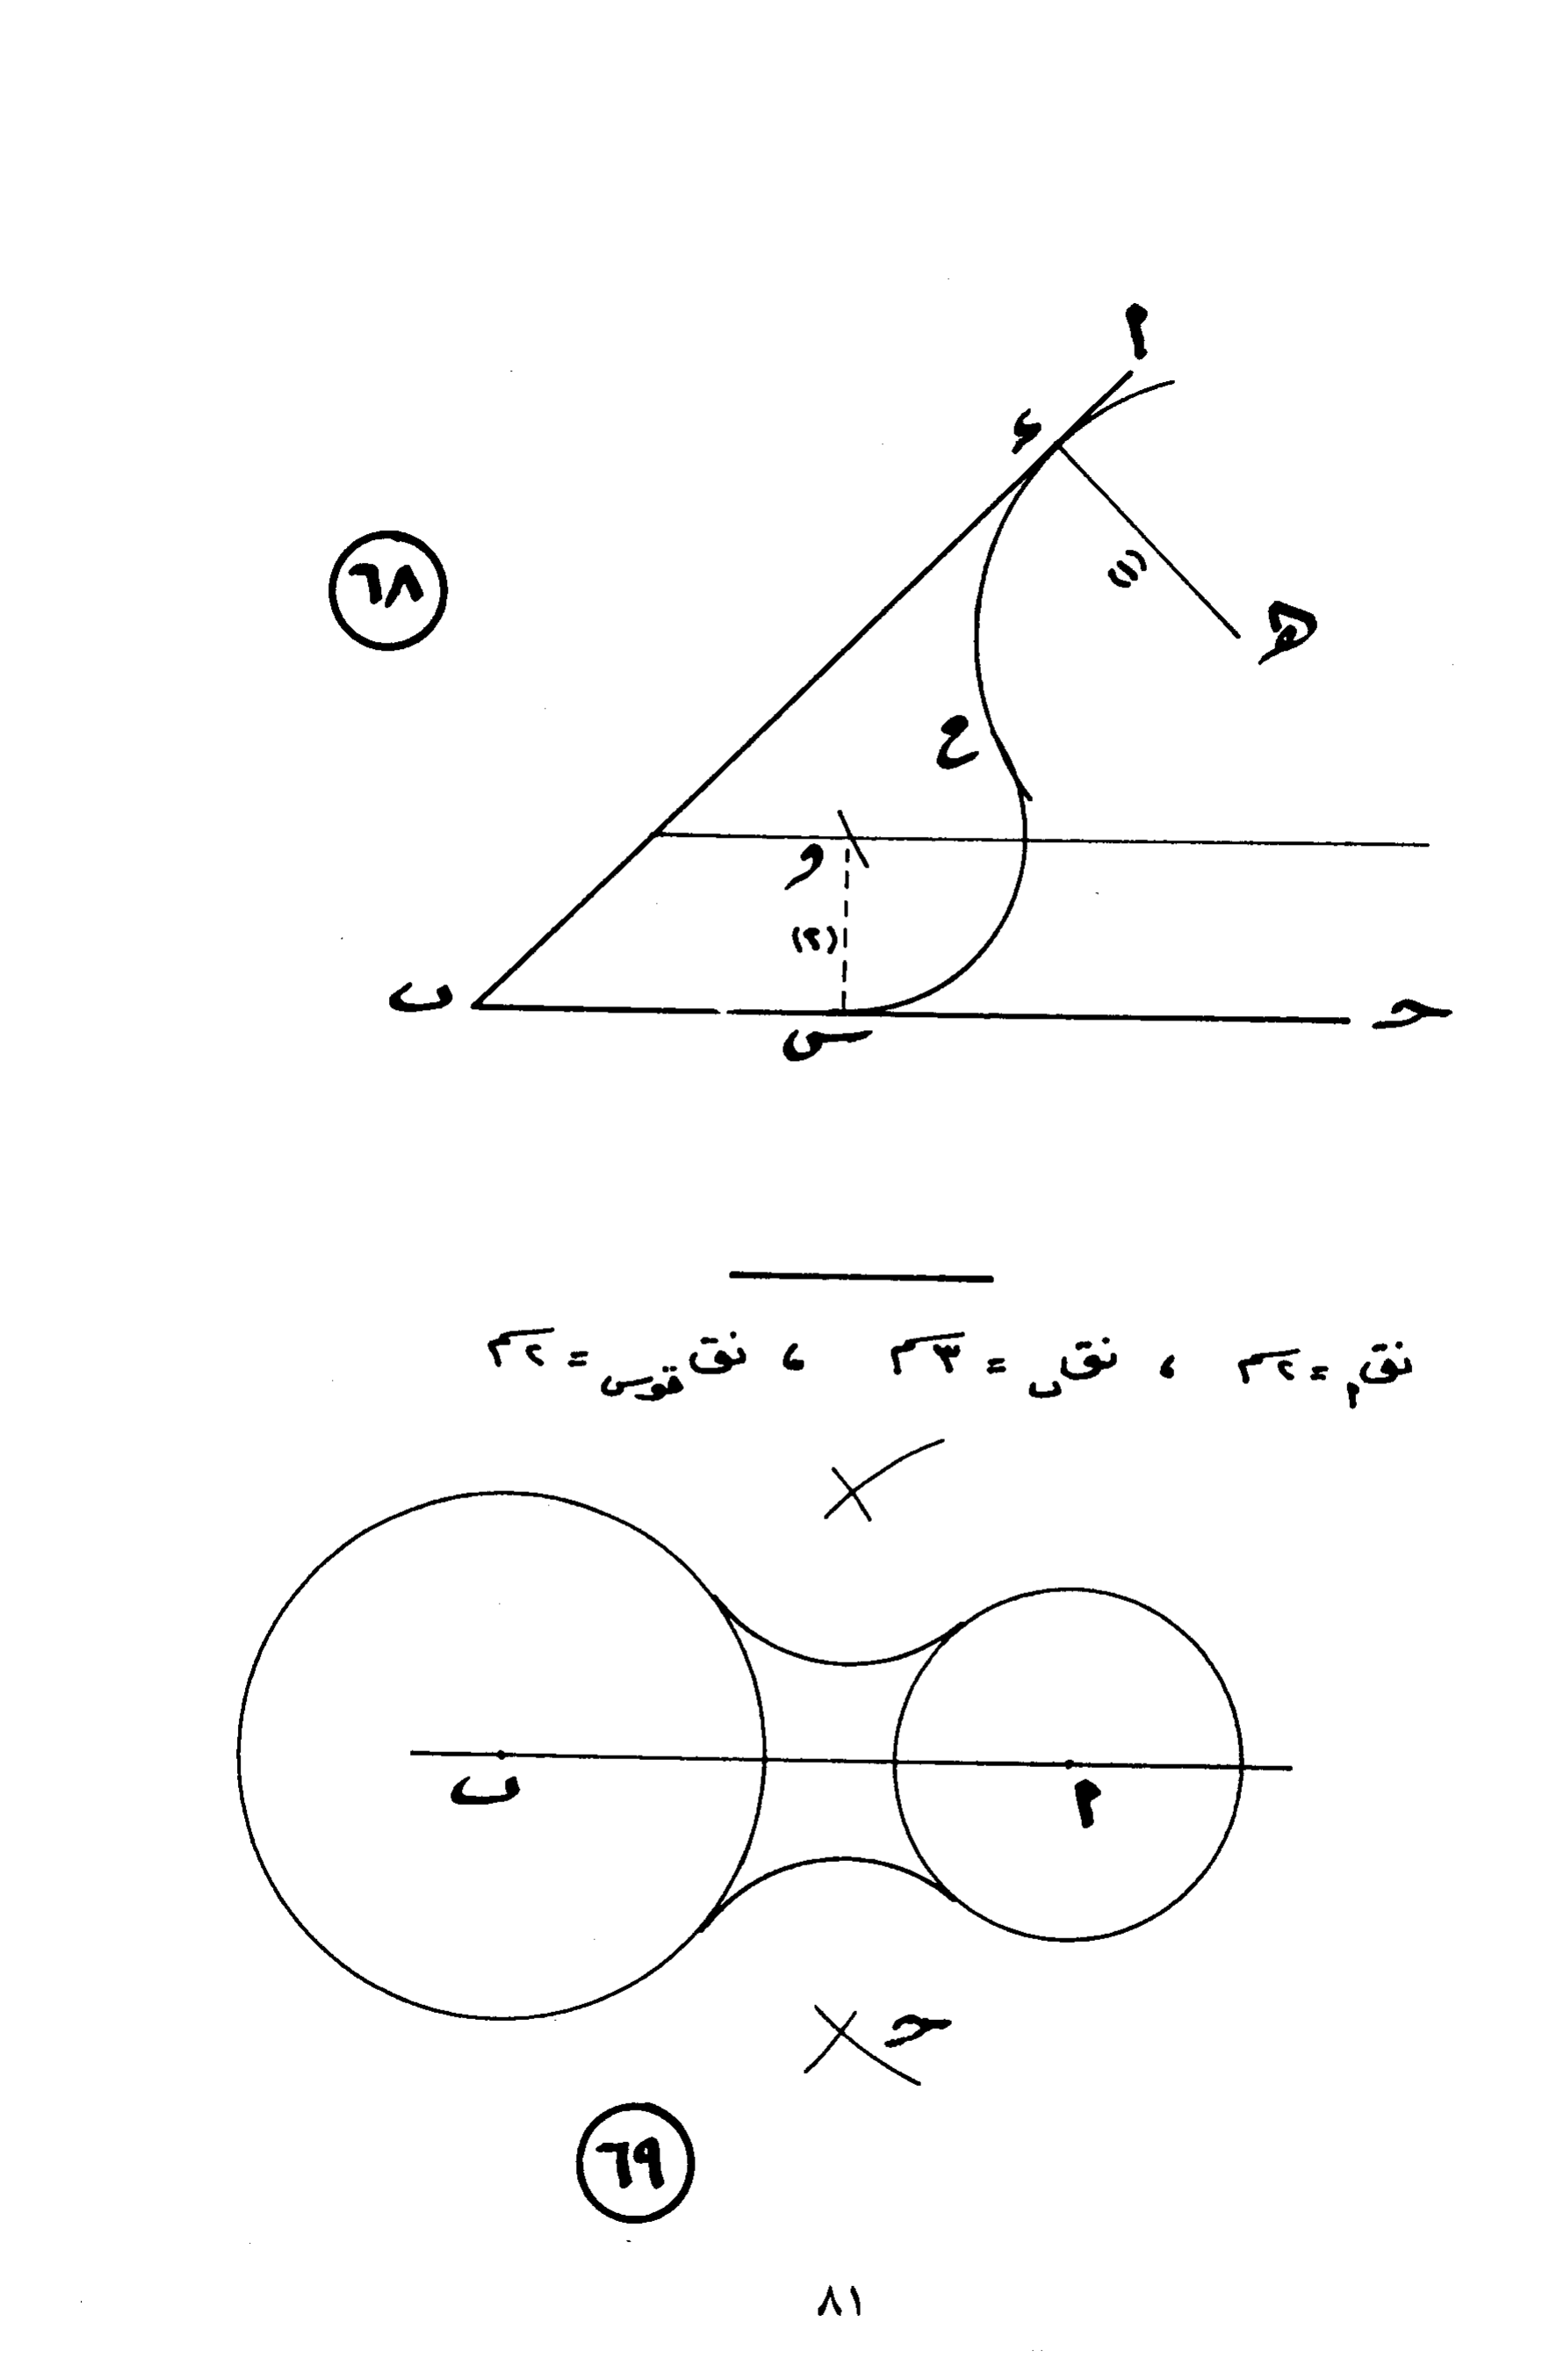 ٢
د
٦٨
(١)
هـ
ع
و
(٢)
ب
س
حـ
نق م = ٢ سم ، نق ب = ٣ سم ، نق قوس = ٢ سم
ب
م
حـ
٦٩
٨١